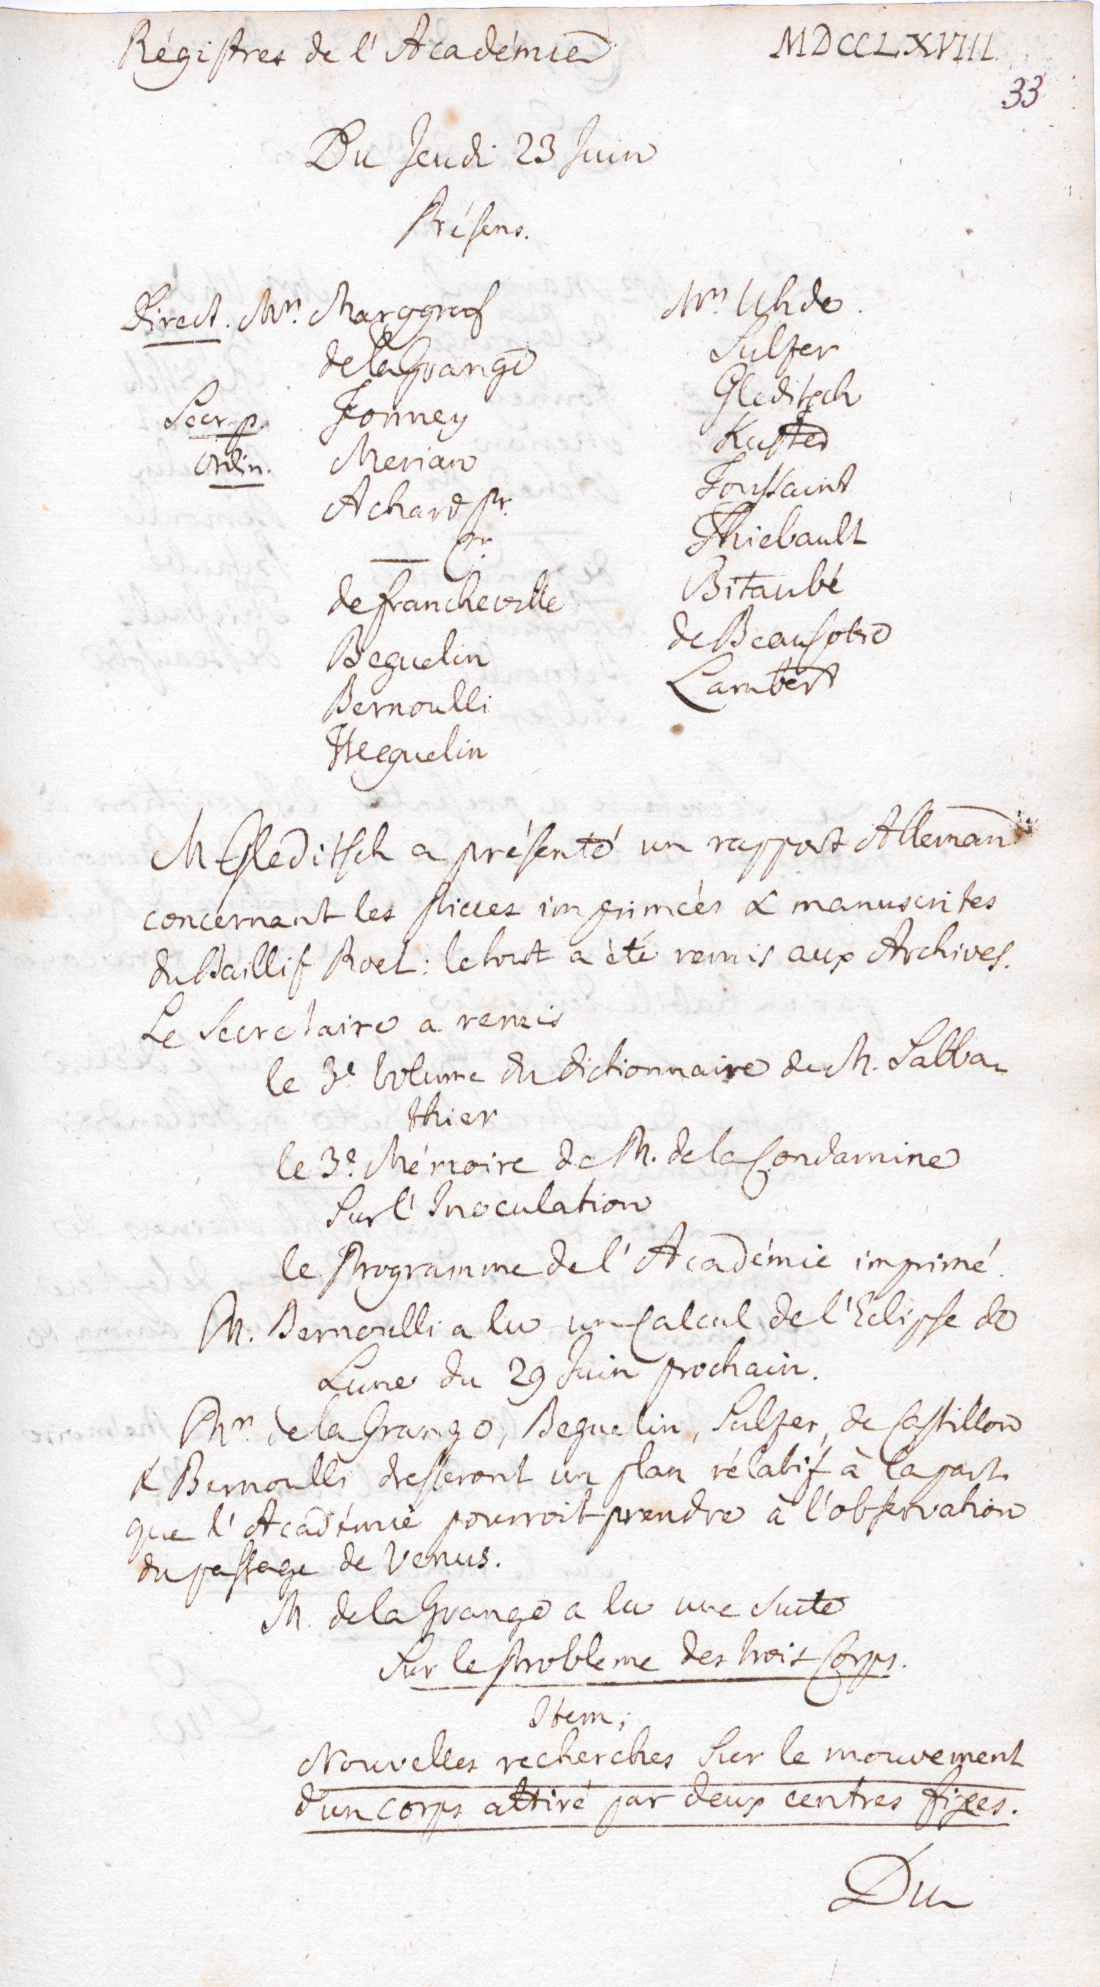 Régistres de l'Académie MDCCLXVIII.
33
Du Jeudi 23 Juin
Présens.
Direct. Mrs. Marggraf
de la Grange
Secr. p. Formey
Ordin. Merian
Achard Pr.
de Francheville
Beguelin
Bernoulli
Weguelin
Mrs Uhde.
Sulzer
Gleditsch
Kuster
Toussaint
Thiebault
Bitaubé
de Beausobre
Lambert
M Gleditsch a présenté un rapport Alleman
concernant les pieces imprimées & manuscrites
du Baillif Roel: le tout a été remis aux Archives.
Le Secretaire a remis
le 3e Volume du dictionnaire de M. Sabba-
thier
le 3e Mémoire de M. de la Condamine
sur l'Inoculation
le Programme de l'Académie imprimé.
M. Bernoulli a lu un Calcul de l'Eclipse de
Lune du 29 Juin prochain.
Mrs. de la Grange, Beguelin, Sulzer, de Castillon
& Bernoulli dresseront un plan rélatif à la part
que l'Académie pourroit prendre à l'observation
du passage de Venus.
M. de la Grange a lu une suite
Sur le Probleme des trois Corps.
Item,
Nouvelles recherches sur le mouvement
d'un corps attiré par deux centres fixes.
Du